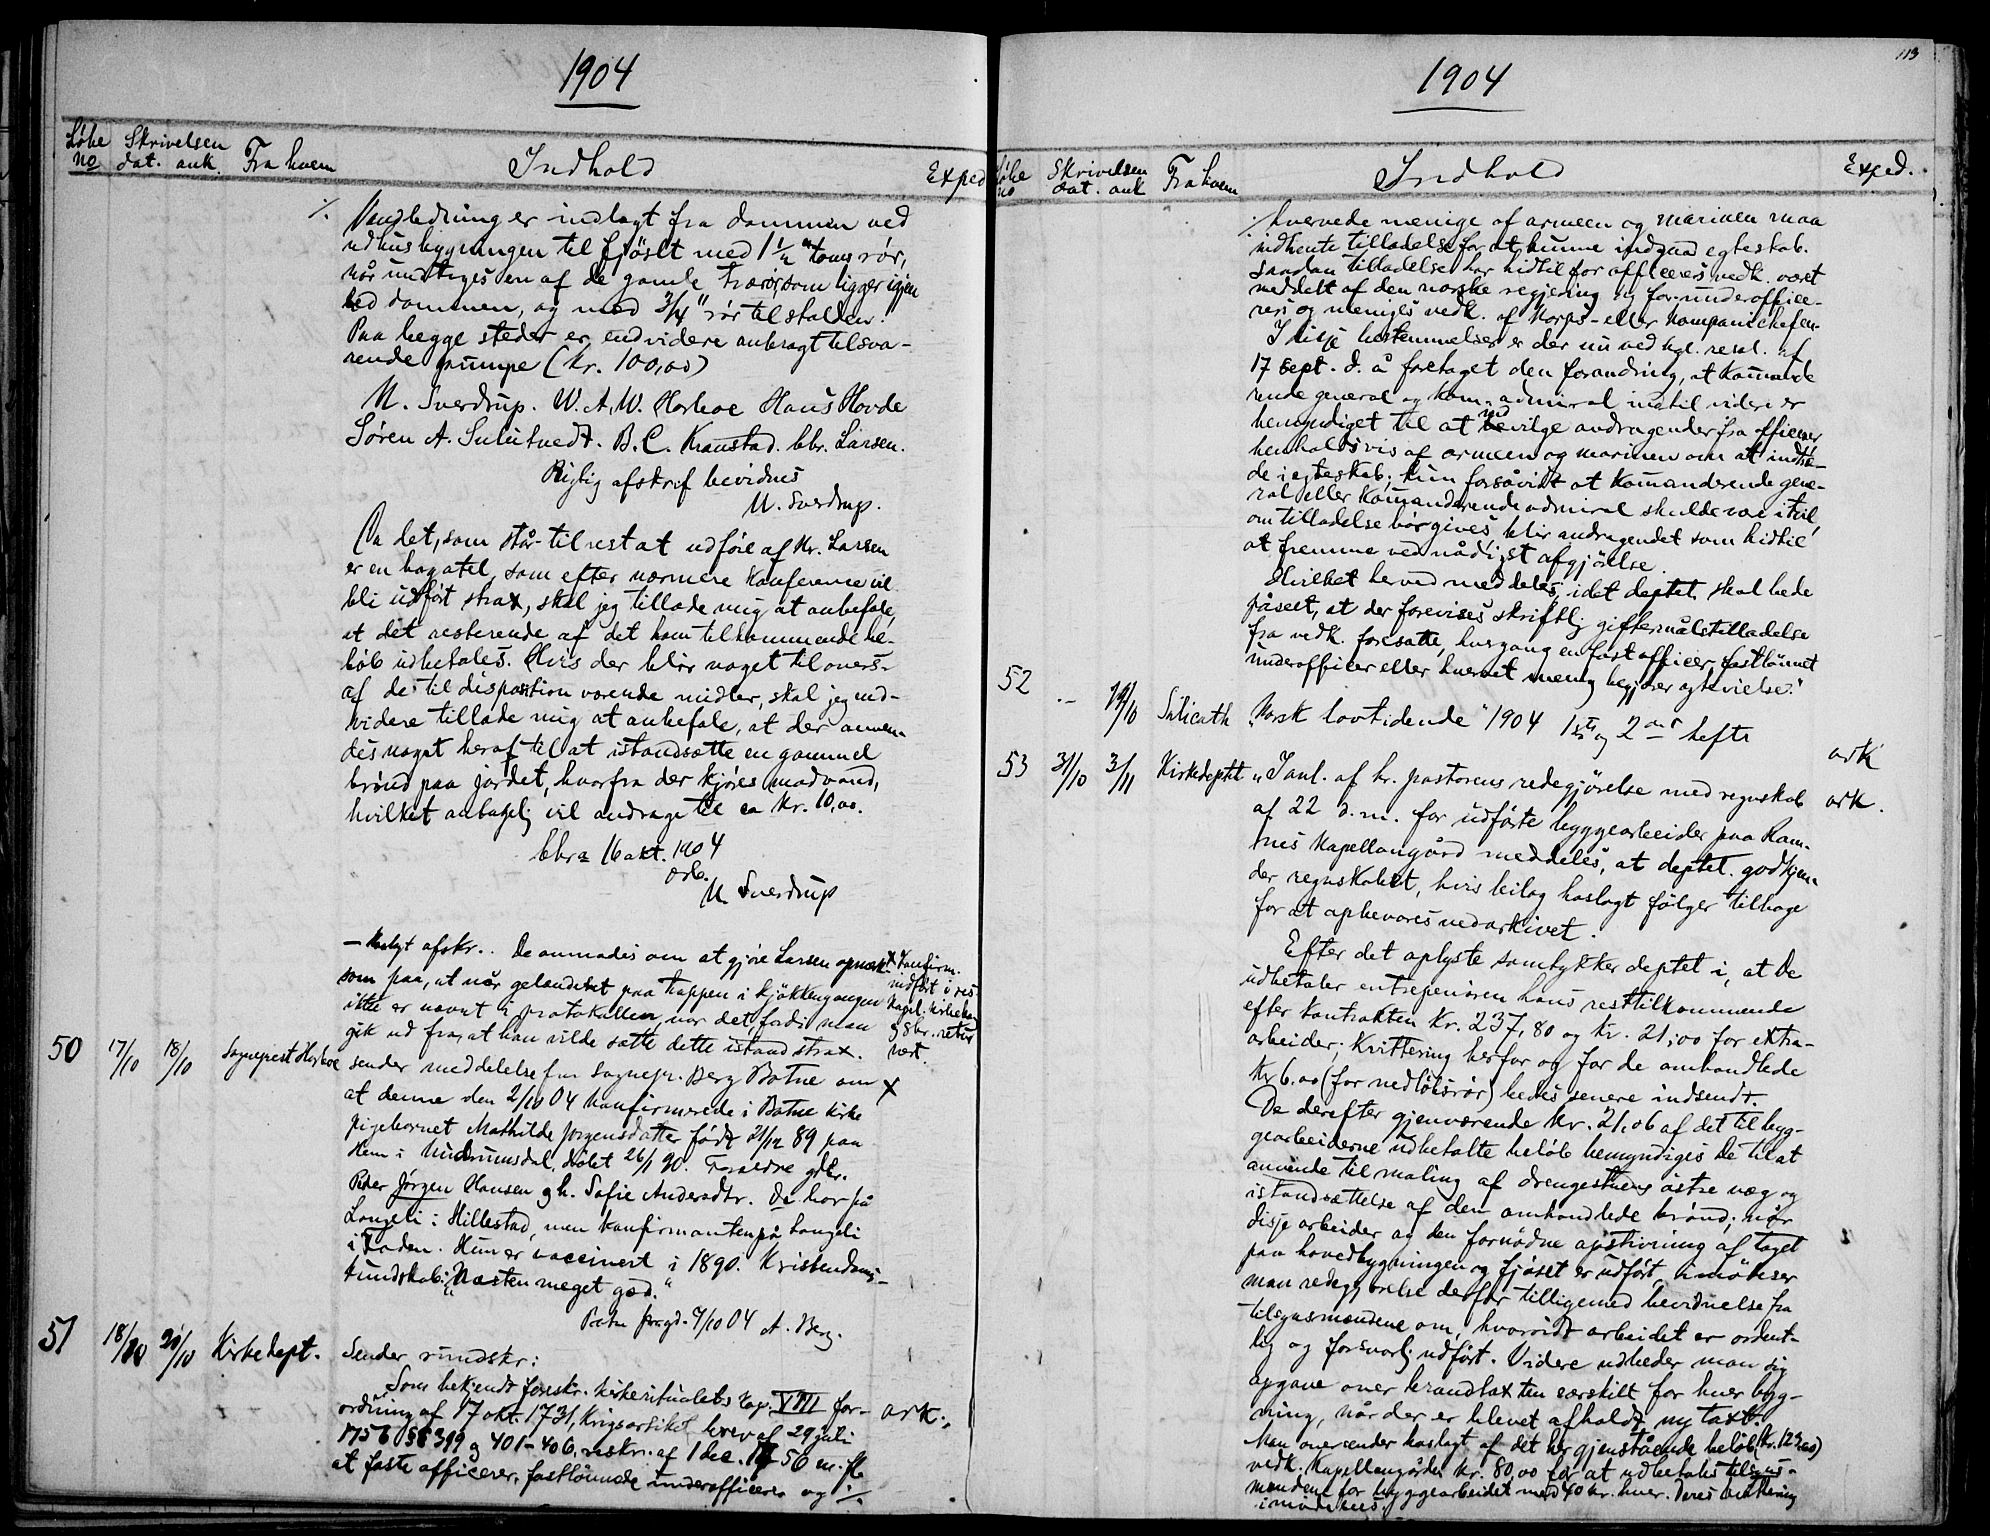 1904
Løbe no
Skrivelsen dat. ank.
Fra hvem
Indhold
Exped
⁒ Vandledning er indlagt fra dammen ved
udhusbygningen til fjøset med 1 1/2" toms rør,
når undtages en af de gamle trærør, som ligger igjen
ved dammen, og med 3/4" rør til stalden.
Paa begge steder er endvidere anbragt tilsva-
rende pumpe (kr. 100,00)
U. Sverdrup. W. A. W. Horboe Hans Hovde
Søren A. B. C. Kranstad. Chr. Larsen.
Rigtig afskrift bevidnes
U. Sverdrup.
Da det, som står til rest at udføre af Hr. Larsen
er en bagatel, som efter nærmere Konference vil
bli udført strax, skal jeg tillade mig at anbefale,
at det resterende af det ham tilkommende be-
løb udbetales. Hvis der blir noget tilovers
af de til disposition værende midler, skal jeg end-
videre tillade mig at anbefale, at der anven-
des noget heraf til at istandsætte en gammel
brønd paa jordet, hvorfra der kjøres madvand,
hvilket antagelig vil andrage til ca kr. 10,00.
Chra 16 okt. 1904
ærb.
U. Sverdrup
— Vedlagt afskr.. De anmodes om at gjøre Larsen opmærk-
som paa, at når gelænderet paa trappen i kjøkkengangen
ikke er nævnt i protokollen, var det, fordi man
gik ud fra, at han vilde sætte dette istand strax.
x Konfirm.
indført i res.
kapel. kirkebog
og 8br. retur-
nert.
50 17/10 18/10 Sogneprest Horboe sender meddelelse fra sognepr. Berg Botne om x
at denne den 2/10 04 Konfirmerede i Botne kirke
pigebarnet Mathilde Jørgensdatter født 21/12 89 paa
Hem i Undrumsdal, døbt 26/1 90. Forældre gbr.
Peder Jørgen Hansen og h. Sofie Andersdtr. De bor på
Langeli i Hillestad, men konfirmanten på Langeli
i Foden. Hun er vaccinert i 1890. Kristendoms-
kundskab: "Næsten meget god."
Botne prgd. 7/10 04 A. Berg.
51 18/10 20/10 Kirkedept. Sender rundskr:
Som bekjendt foreskr. kirkeritualets kap. VIII for-
ordning af 17 okt. 1731, Krigsartikel brev af 29 juli
1756 §§ 399 og 401-406, reskr. af 1 dec. 1750 m. fl.
at faste officerer, fastlønnede underofficerer og ⁒
ark.
113
1904
Løbe no
Skrivelsen dat. ank
Fra hvem
Indhold
Exped.
⁒ hvervede menige af armeen og marinen maa
indhente tilladelse for at kunne indgaa egteskab.
Saadan tilladelse har hidtil for officerers vedk. været
meddelt af den norske regjering og for underoffice-
rers og meniges vedk. af Korps- eller Kompanichefen.
I disse bestemmelser er der nu ved kgl. resol. af
17 sept. d. å foretaget den forandring, at komande-
rende general og kom. admiral indtil videre er
bemyndiget til at bevilge andragender fra officerer
henholdsvis af armeen og marinen om at indtræ-
de i egteskab; kun forsåvidt at Komanderende gene-
ral eller Komanderende admiral skulde være i tvil
om tilladelse bør gives, blir andragendet som hidtil
at fremme ved nådigst afgjørelse.
Hvilket herved meddeles, idet deptet. skal bede
påseet, at der forevises skriftlig giftermålstilladelse
fra vedk. foresatte, hvergang en fast officer, fastlønnet
underofficer eller hvervet menig begjærer egtevielse."
52 .- 19/10 Salicath "Norsk lovtidende" 1904 1ste og 2det hefte
ark
53 31/10 3/11 Kirkedeptet "I anl. af hr. pastorens redegjørelse med regnskab
ark.
af 22 d.m. for udførte byggearbeider paa Ram-
nes Kapellangård meddeles, at deptet. godkjen-
der regnskabet, hvis bilag hoslagt følger tilbage
for at opbevares ved arkivet.
Efter det oplyste samtykker deptet i, at De
udbetaler entreprenøren hans resttilkommende
efter kontrakten Kr. 237,80 og Kr. 21,00 for extra-
arbeider; Kvittering herfor og for de omhandlede
Kr 6.00 (for nedløbsrør) bedes senere indsendt.
De derefter gjenværende Kr. 21,06 af det til byg-
gearbeiderne udbetalte beløb bemyndiges De til at
anvende til maling af drengestuens østre væg og
istandsættelse af den omhandlede brønd; når
disse arbeider og den fornødne opstivning af taget
paa hovedbygningen og fjøset er udført, imøteser
man redegjørelse derfor tilligemed bevidnelse fra
tilsynsmændene om, hvorvidt arbeidet er ordent-
lig og forsvarlig udført. Videre udbeder man sig
opgave over brandtaxten særskilt for hver byg-
ning, når der er blevet afholdt ny taxt.
Man oversender hoslagt af det her gjenstående beløb (Kr. 123,00)
vedk. Kapellangården Kr. 80,00 for at udbetales tilsyns-
mændene for byggearbeidet med 40 kr. hver. Deres kvittering
imødesees.